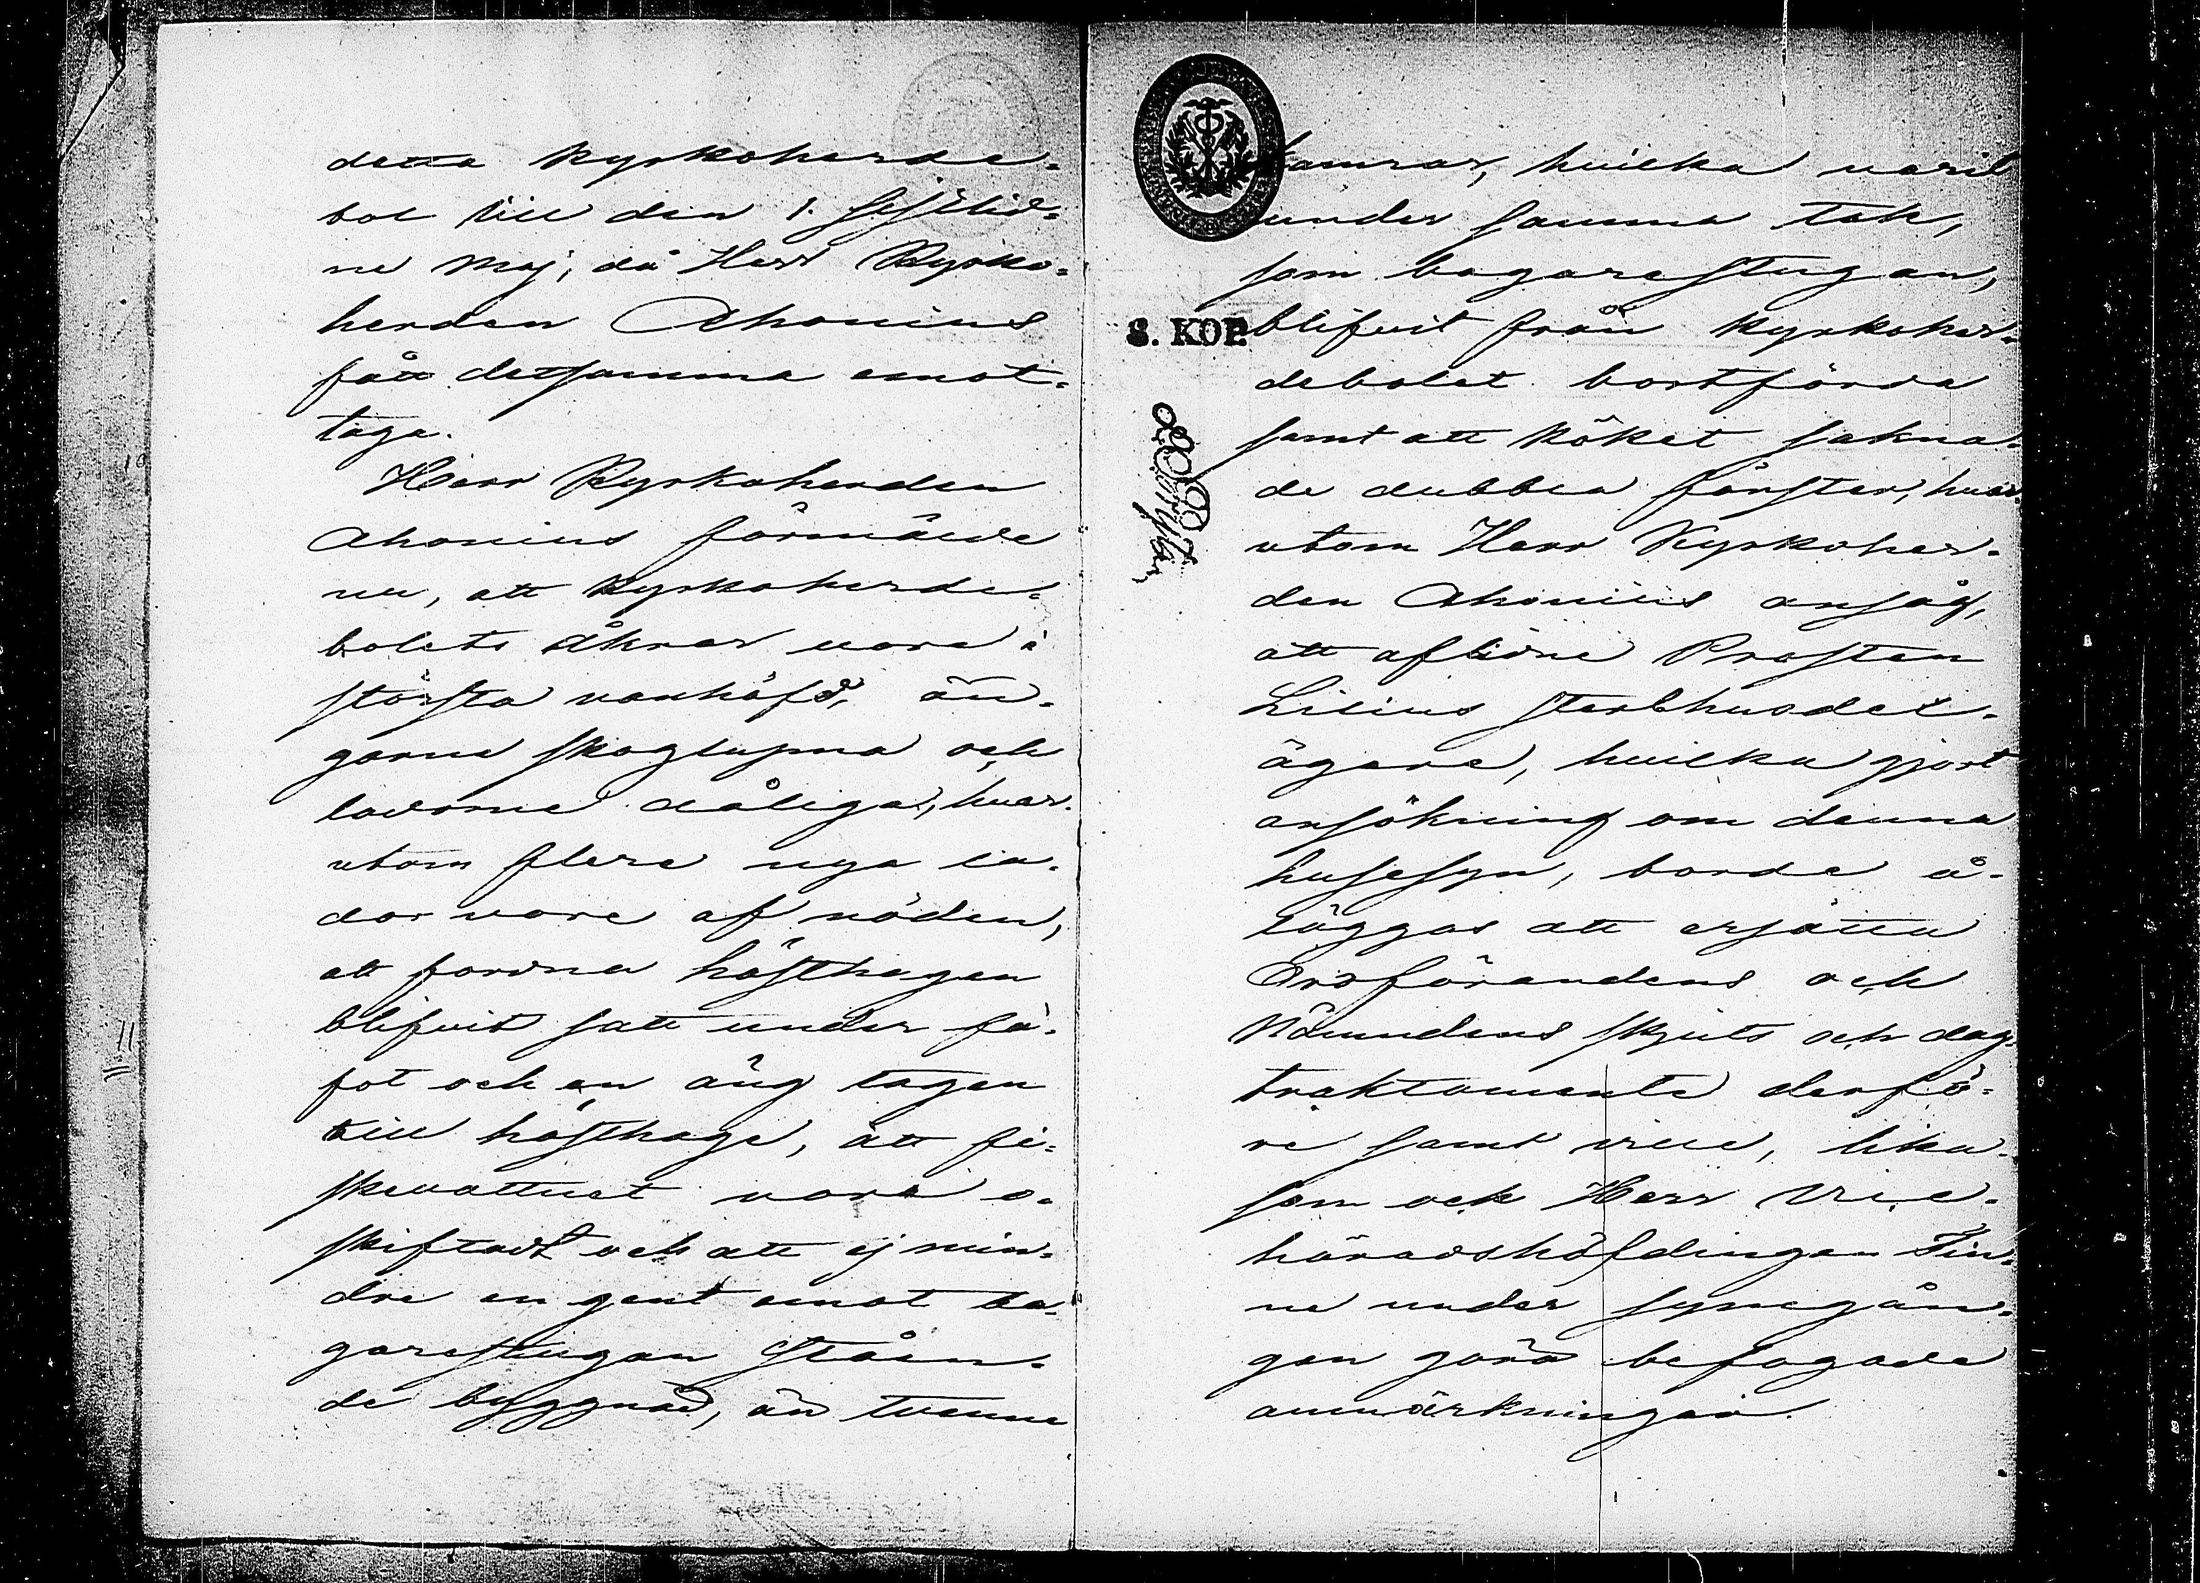 detta Kyrkoherde-
bol till den 1. sistlid-
ne Maj, då Herr Kyrko-
herden Ahonius
fått detsamma emot-
taga.
Herr Kyrkoherden
Ahonius förmälde
nu, att Kyrkoherde-
bolets åkrar vore i
största vanhäfd, än-
garne skoglupna och
ladorne dåliga, huar-
utom flere nya la-
dor vore af nöden,
att fordna hästhagen
blifvit satt under fä-
fot och en äng tagen
till hästhage, att fi-
skevattnet vore o-
skiftadt och att ej min-
dre en gent emot ba-
garestugan ståen-
de byggnad, än tvenne
kamrar, hvilka varit
under samma tak,
som bagarestugan,
blifvit från Kyrkoher-
debolet bortförda
samt att köket sakna-
de dubbla fönster, huar-
utom Herr Kyrkoher-
den Ahonius ansåg,
att aflidne Prosten
Lilius sterbhusdel-
ägare, hvilka gjort
ansökning om denna
husesyn, borde å-
läggas att ersätta
Ordförandens och
Nämndens skjuts och dag-
traktamente derfö-
re samt ville, lika-
som ock Herr Vice-
häradshöfdingen Fin-
ne under synegån-
gen göra befogade
anmärkningar.
8. KOP.
10
11